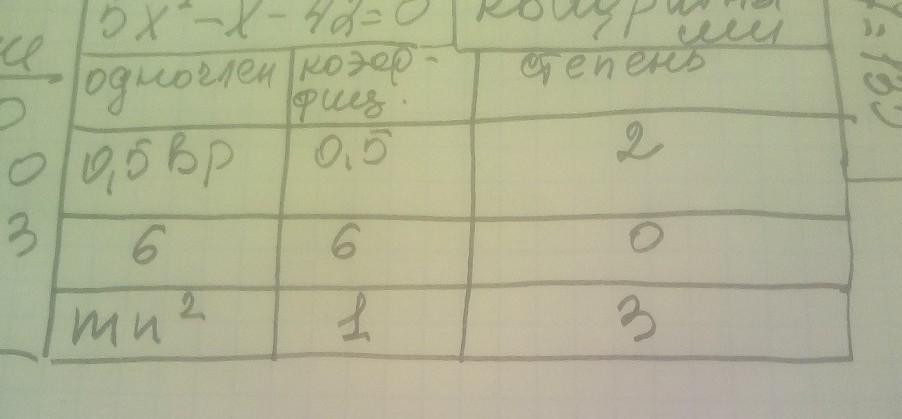 5x² - x - 42 = 0
одночлен | коэф-фиц. | степень
0,5 вр | 0,5 | 2
6 | 6 | 0
mn² | 1 | 3
0
0
3